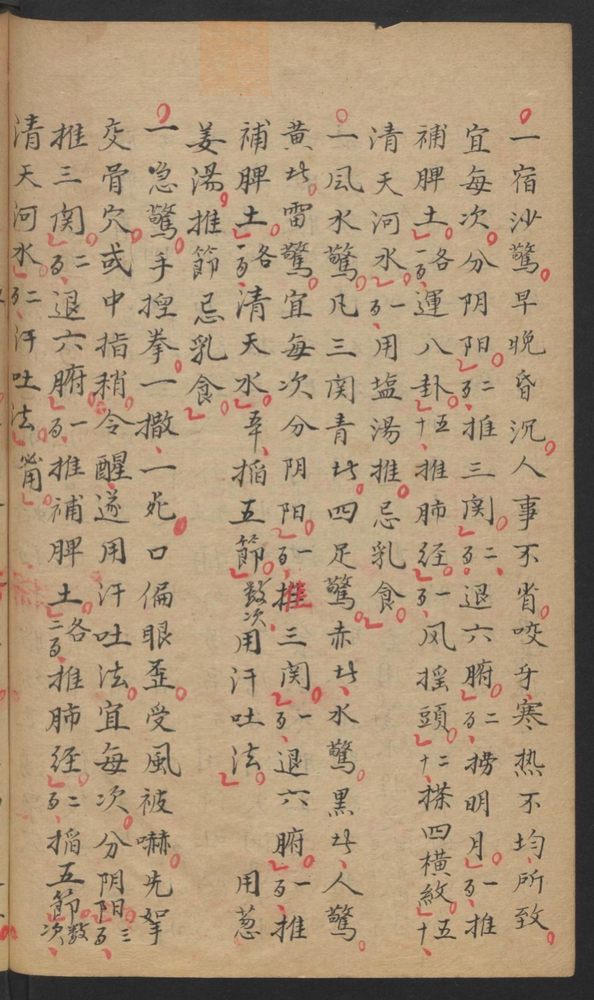 一宿沙驚早晚昏沉人事不省咬牙寒热不均所致
宜每次分阴阳二百推三関二百退六腑二百撈明月一百推
補脾土各一百運八卦五十推肺经一百风摇頭二十搽四横紋五十
清天河水一百用塩湯推忌乳食
一風水驚凡三関青此四足驚赤此水驚黑此人驚
黄此雷驚宜每次分阴阳一百推三関一百退六腑一百推
補脾土各一百清天水掐五節数次用汗吐法 用葱
姜湯推節忌乳食
一急驚手揑拳一撒一死口偏眼歪受風被嚇先
交骨穴或中指稍令醒遂用汗吐法宜每次分阴阳三百
推三関二百退六腑一百推補脾土各二百推肺经二百掐五節数次
清天河水二百汗吐法必用